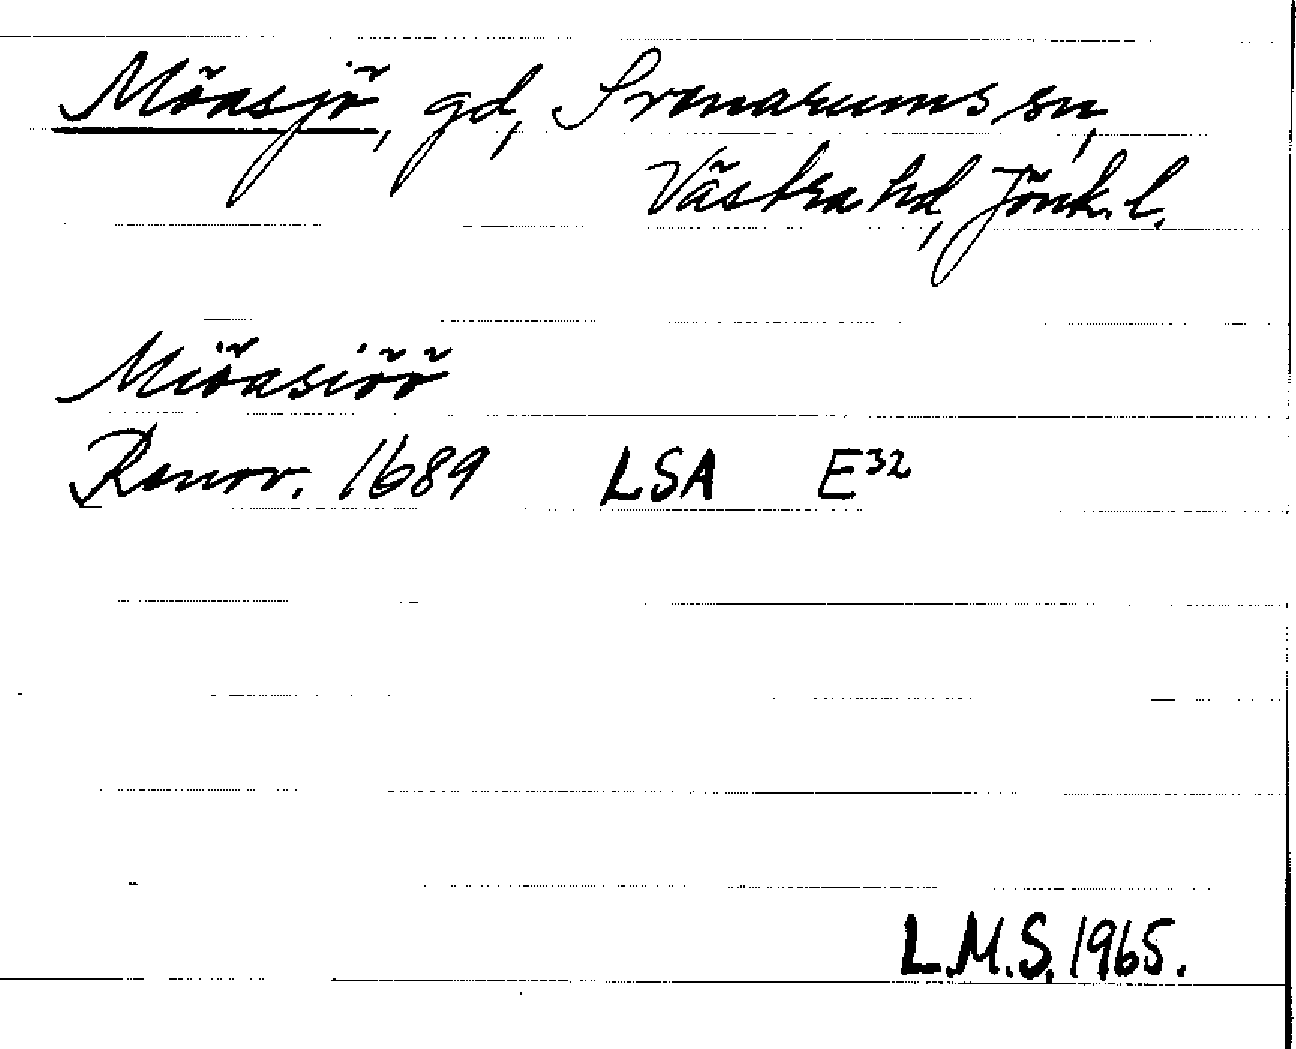 Möasjö, gd, Svenarums sn,
Västra hd, Jönk. l.
Miöasiöö
Renov. 1689 LSA E32
L.M.S. 1965.